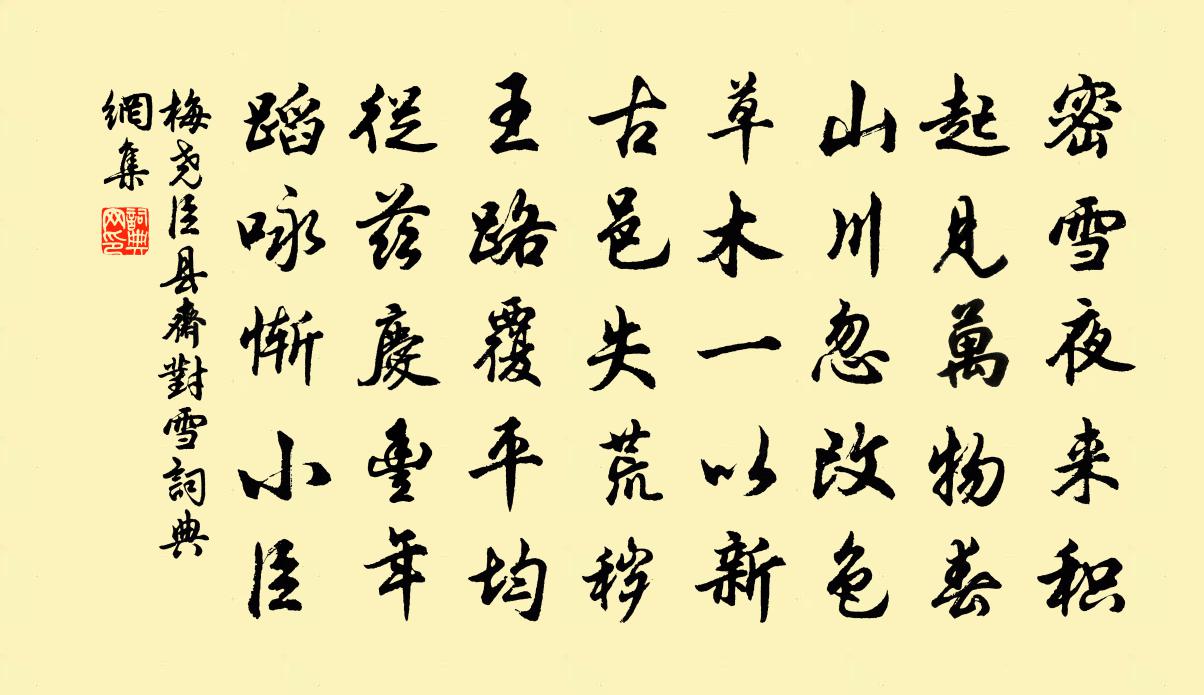 密雪夜来积
起見萬物春
山川忽改色
草木一以新
古邑失荒秽
王路覆平均
從茲慶豐年
蹈咏惭小臣
梅尧臣县齋對雪詞典
網集
詞典网印